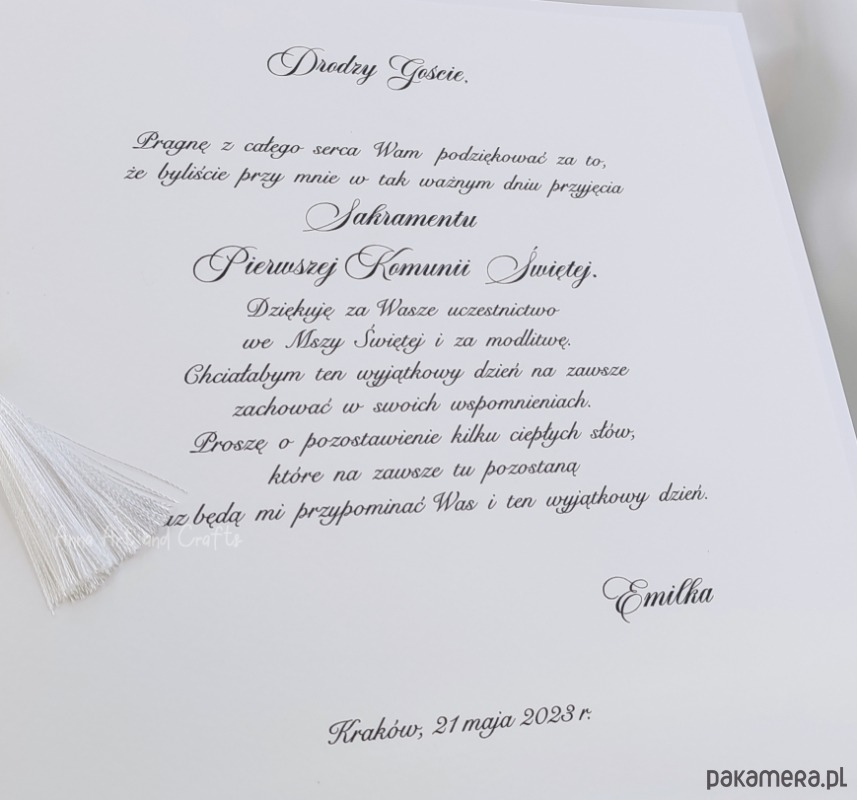 Drodzy Goście.
Pragnę z całego serca Wam podziękować za to,
że byliście przy mnie w tak ważnym dniu przyjęcia
Sakramentu
Pierwszej Komunii Świętej.
Dziękuję za Wasze uczestnictwo
we Mszy Świętej i za modlitwę.
Chciałabym ten wyjątkowy dzień na zawsze
zachować w swoich wspomnieniach.
Proszę o pozostawienie kilku ciepłych słów,
które na zawsze tu pozostaną
będą mi przypominać Was i ten wyjątkowy dzień.
Anna Art and Crafts
Emilka
Kraków, 21 maja 2023 r.
pakamera.pl